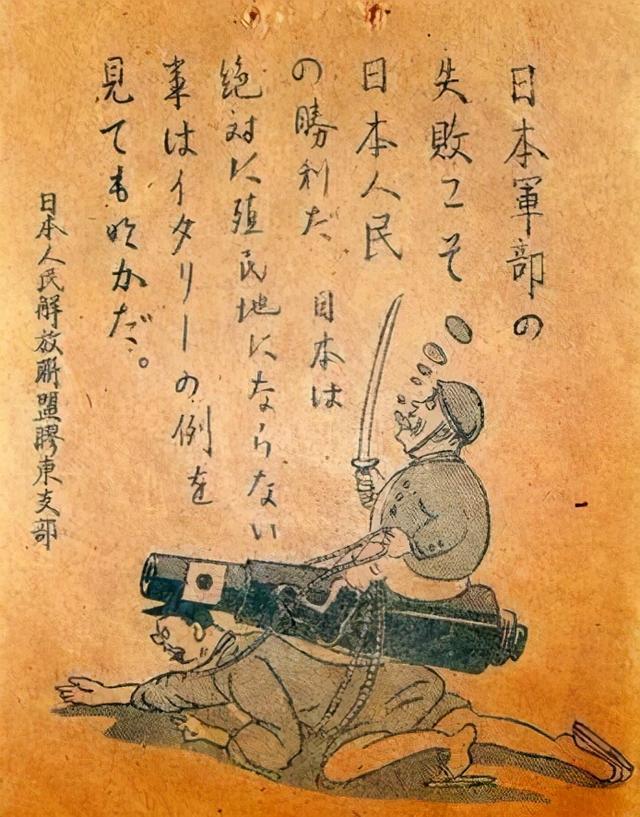 日本軍部の
失敗こそ
日本人民
の勝利だ 日本は
絶対に殖民地にならない
事はイタリーの例を
見ても明かだ。
日本人民解放聯盟膠東支部